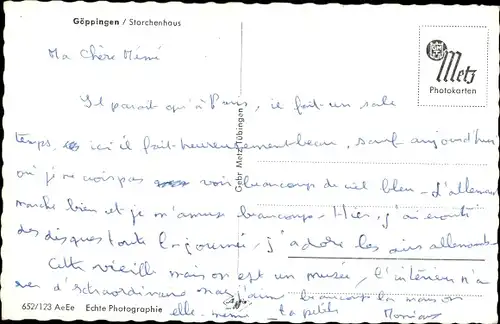 Göppingen / Storchenhaus
Metz
Photokarten
Ma Chère Mémé
Il parait qu'à Paris, il fait un sale
temps, ici il fait heureusement beau, sauf aujourd'hui
où je ne vois pas beaucoup de ciel bleu - L'allemand
marche bien et je m'amuse beaucoup - Hier, j'ai écouté
des disques toute la journée, j'adore les airs allemands
Cette vieille maison est un musée, l'intérieur n'a
rien d'extraordinaire mais j'aime beaucoup la maison
elle-même Ta petite
Monique
Gebr. Metz, Tübingen
652/123 AeEe Echte Photographie